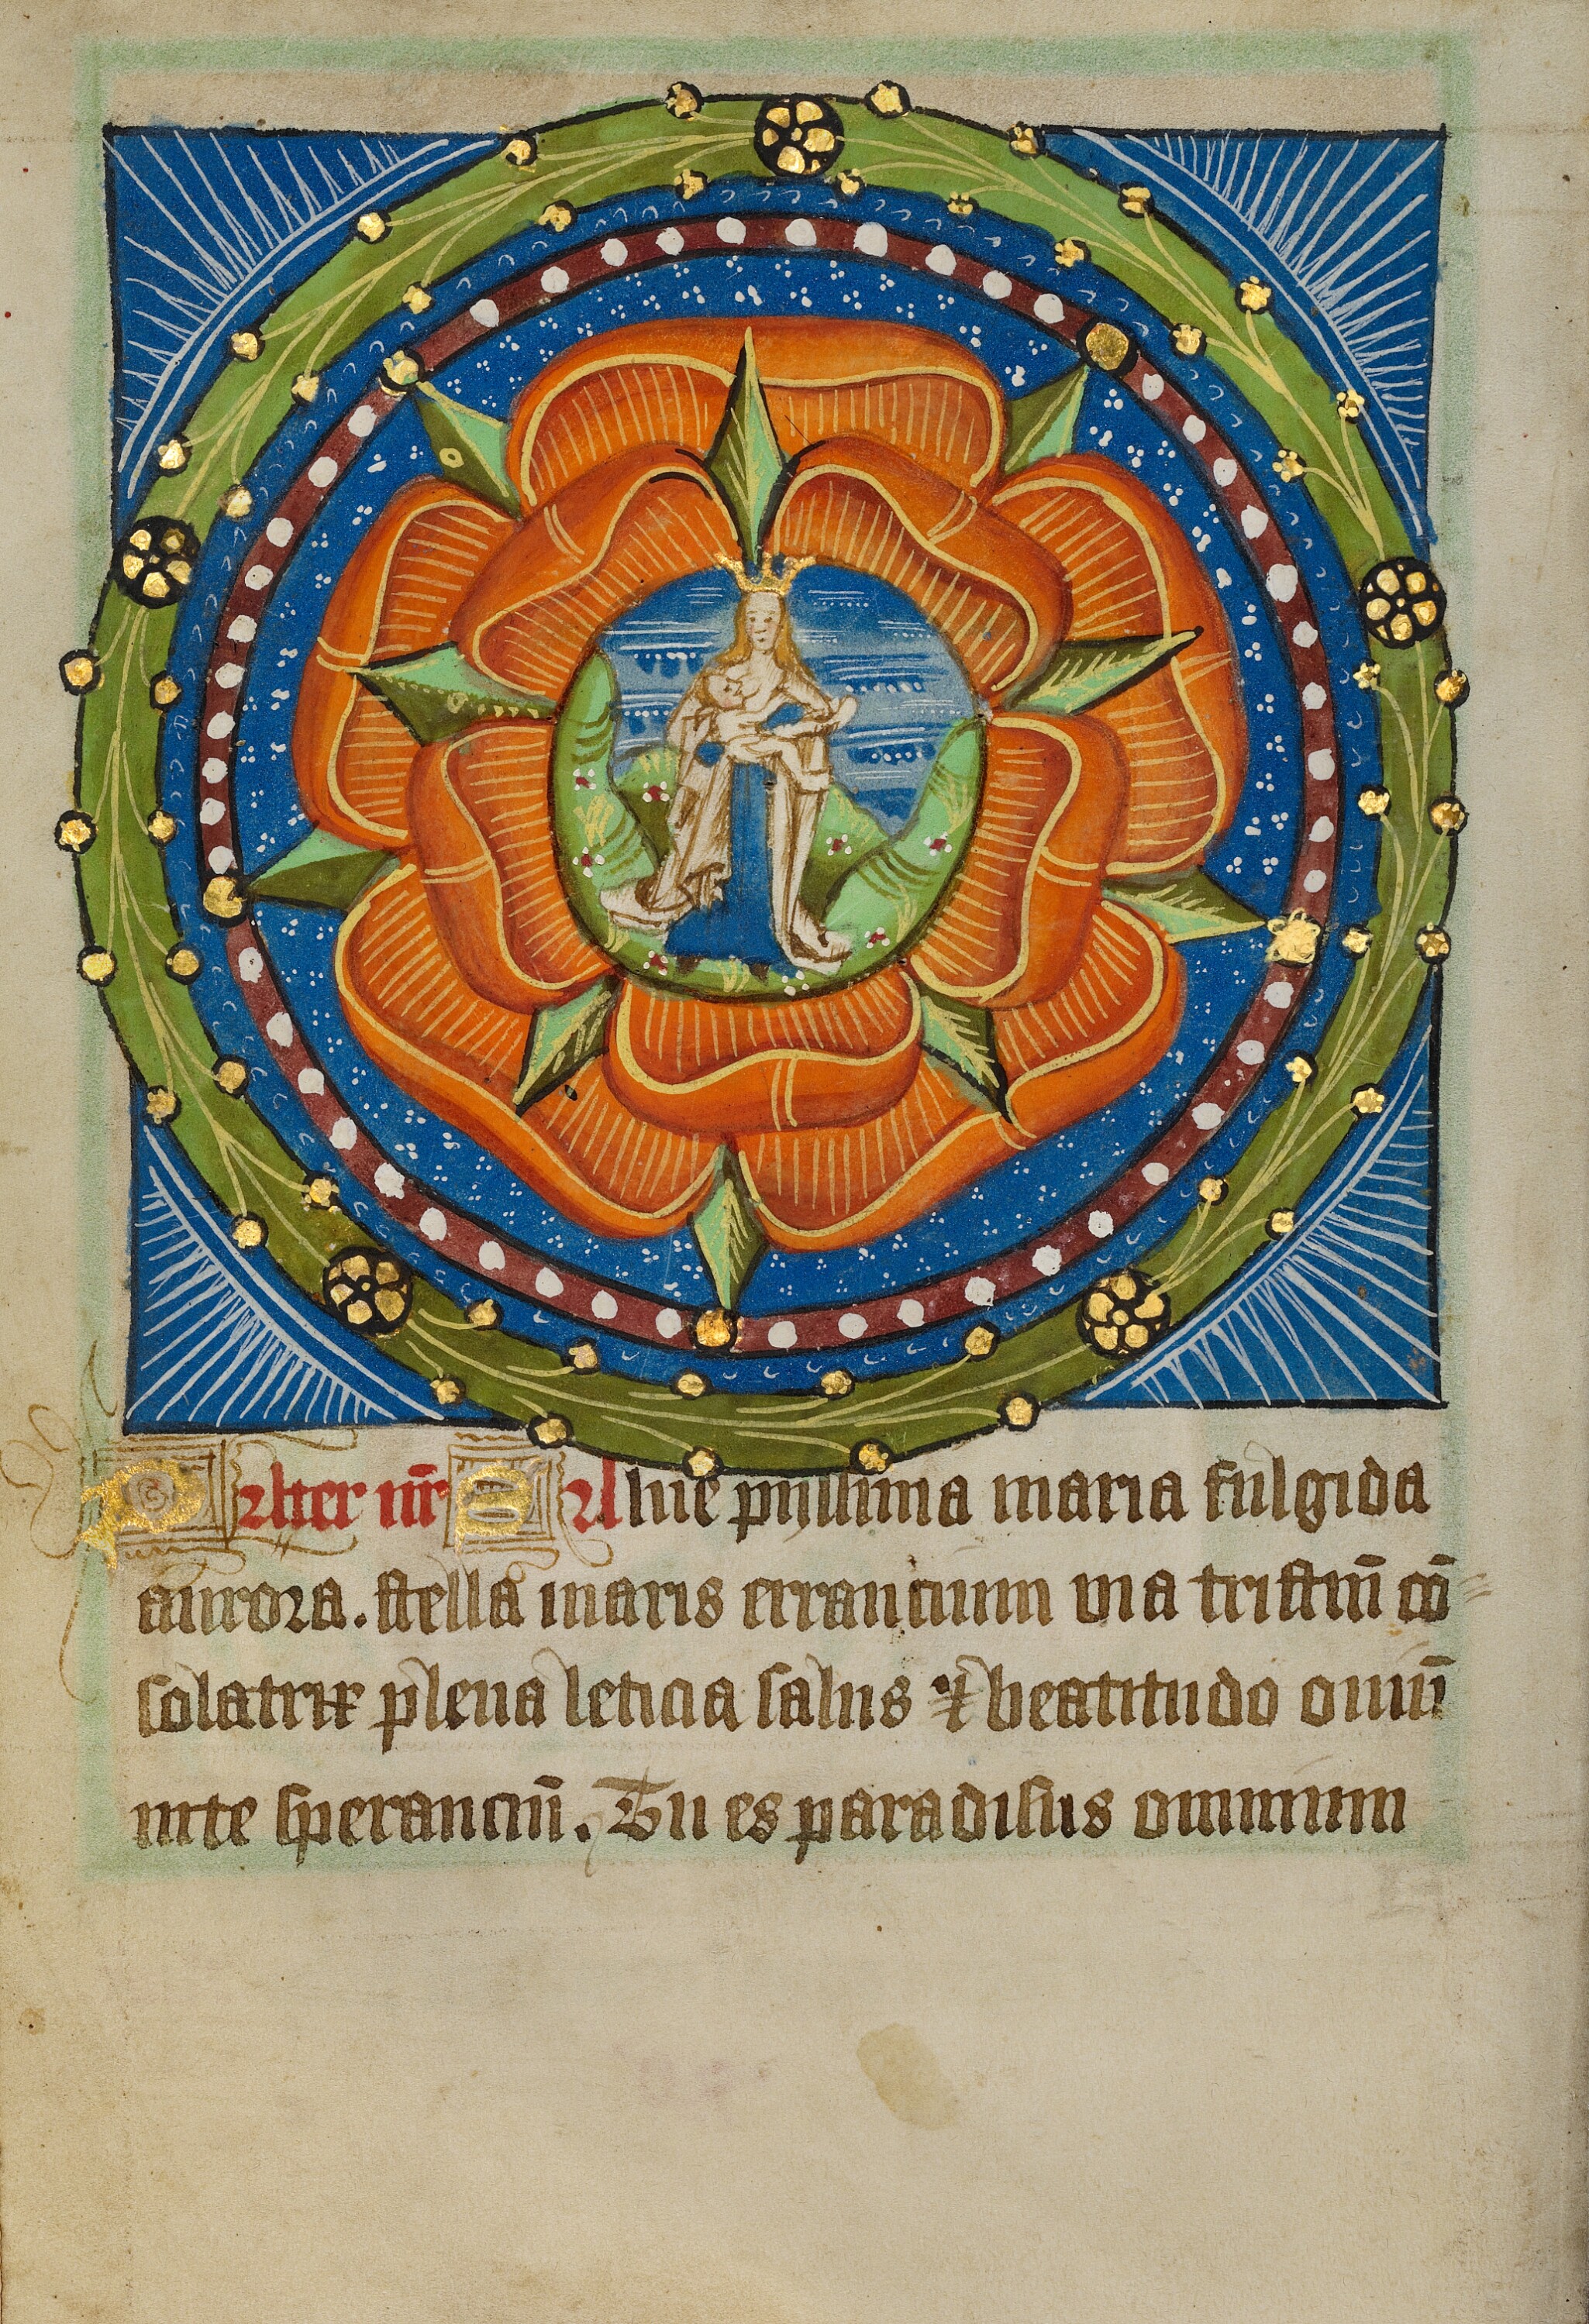 Pater nr̄ Aue piissima maria fulgida
aurora. stella maris errancium via tristiū cō
solatrix plena leticia salus ⁊ beatitudo oniū
inte speranciū. Tu es paradisus omnium